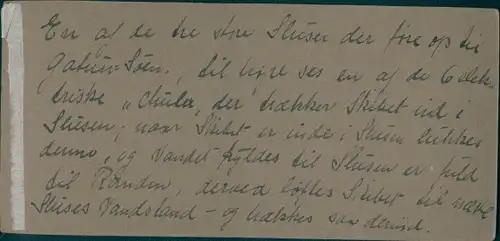 En af de tre store Sluser der føre op til
Gatun-Søen., til højre ses en af de 6 elek-
triske „Muler„ der trækker Skibet ind i
Slusen, naar Skibet er inde i Slusen lukkes
denne, og Vandet fyldes til Slusen er fuld
til Randen, derved løftes Skibet til næste
Sluses Vandstand - og trækkes saa derind.